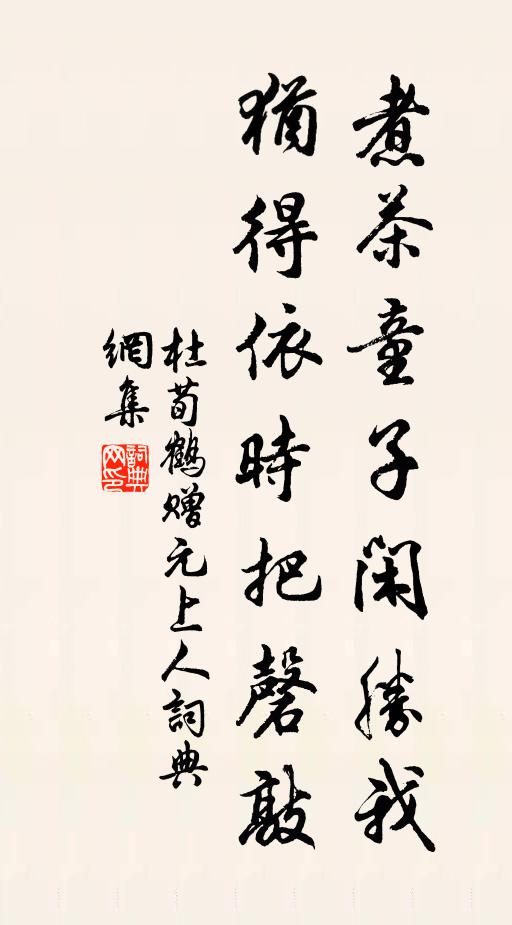 煮茶童子閑勝我
猶得依時把磬敲
杜荀鶴贈元上人詞典
網集
詞典
網印